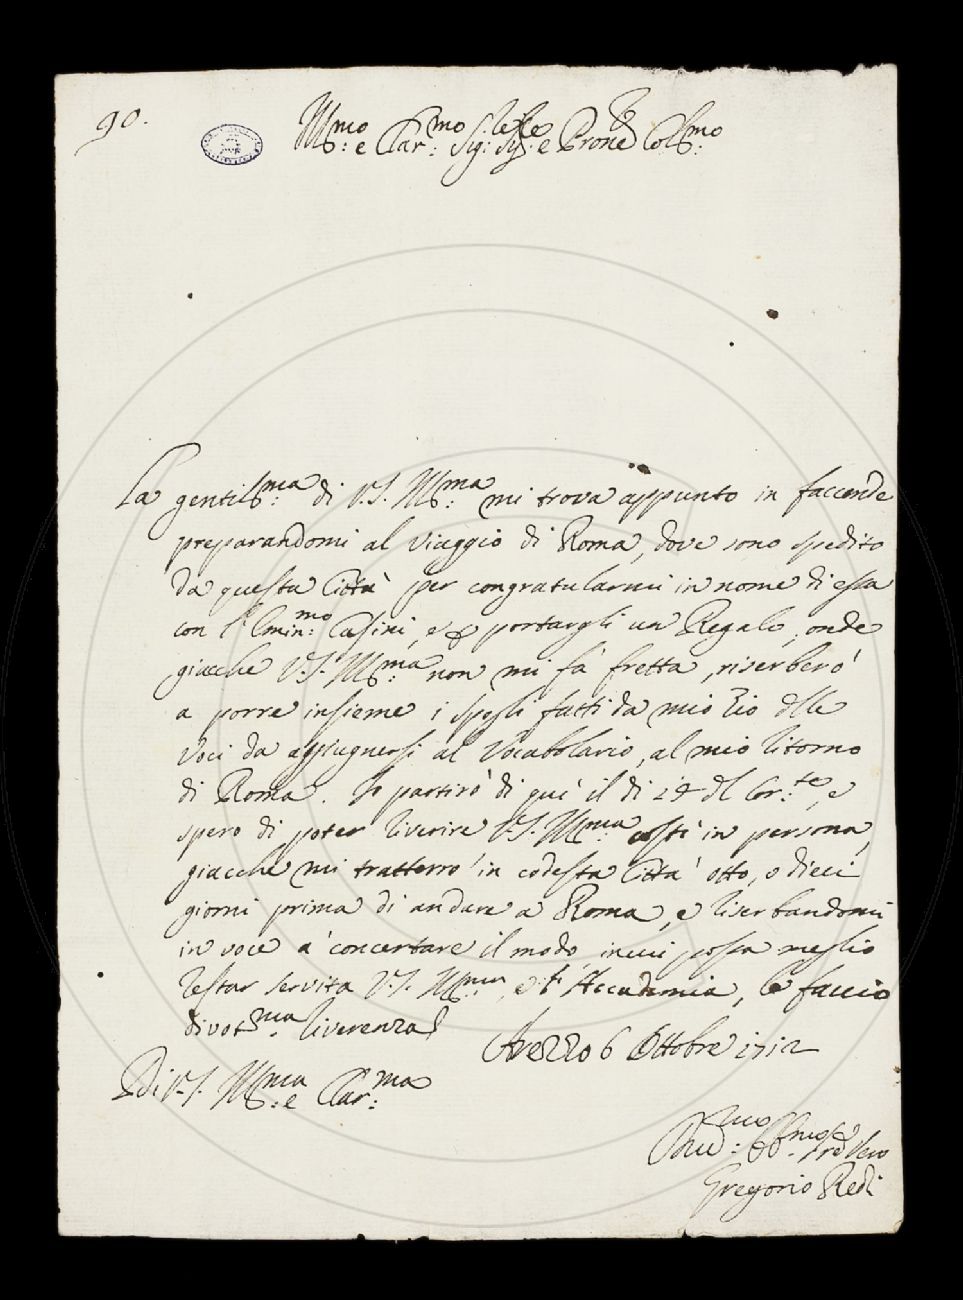 90.
Ill.mo e Clar.mo Sig.re Sig.re e Prone Col.mo
La gentil.ma di V.S. Ill.ma mi trova appunto in faccende
preparandomi al viaggio di Roma, dove sono spedito
da questa Città per congratularmi in nome di essa
con l'Emin.mo Casini, e portargli un Regalo, onde
giacche V.S. Ill.ma non mi fà fretta, riserberò
a porre insieme i spogli fatti da mio Zio delle
Voci da aggiugnersi al Vocabolario, al mio ritorno
di Roma. Io partirò di quì il di 14 del Cor.te, e
spero di poter riverire V.S. Ill.ma costì in persona,
giacche mi tratterrò in codesta Città otto, o dieci
giorni prima di andare a Roma, e riserbandomi
in voce à concertare il modo, in cui possa meglio
restar servita V.S. Ill.ma, e l'Accademia, le faccio
divot.ma riverenza
Arezzo 6 Ottobre 1712
Di V.S. Ill.ma e Clar.ma
Dev.mo Obb.mo Ser. Vero
Gregorio Redi